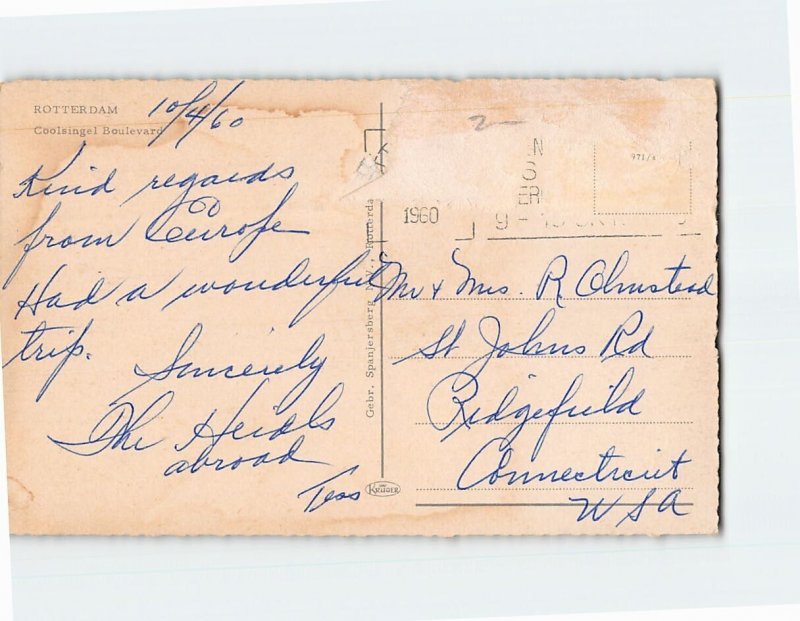 ROTTERDAM
Coolsingel Boulevard
10/4/60
Kind regards
from Europe
Had a wonderful
trip.
Sincerely
The Heidls
abroad
Tess
Gebr. Spanjersberg N.V., Rotterda
KRÜGER
971/4
N
S
ER
1960
Mr & Mrs. R Olmstead
St Johns Rd
Ridgefield
Connecticut
USA